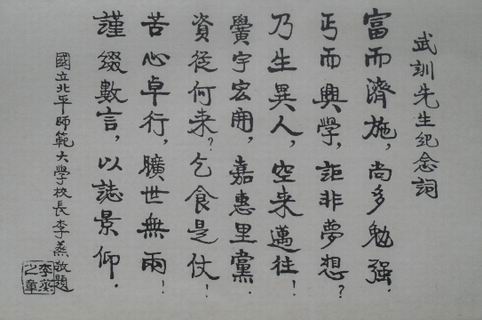 武訓先生紀念詞
富而濟施，尚多勉强．
丐而興學，詎非夢想？
乃生異人，空来邁往！
黌宇宏開，嘉惠里黨．
資從何来？乞食是仗！
苦心卓行，曠世無兩！
謹綴數言，以誌景仰．
國立北平師範大學校長李蒸敬題
李蒸之章